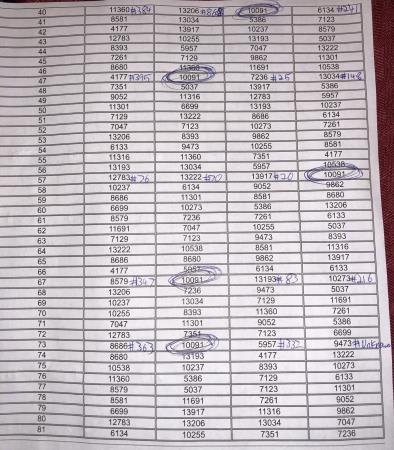 40 11360 #384 13206 10091 6134 #241
41 8581 13034 5386 7123
42 4177 13917 10237 8579
43 12783 10255 13193 5037
44 8393 5957 7047 13222
45 7261 7129 9862 11301
46 8680 11360 11691 10538
47 4177 #395 10091 7236 #25 13034 #148
48 7351 5037 13917 5386
49 9052 11316 12783 5957
50 11301 6699 13193 10237
51 7129 13222 8686 6134
52 7047 7123 10273 7261
53 13206 8393 9862 8579
54 6133 9473 10255 8581
55 11316 11360 7351 4177
56 13193 13034 5957 10538
57 12783 #76 13222 #70 13917 #20 10091
58 10237 6134 9052 9862
59 8686 11301 8581 8680
60 6699 10273 5386 13206
61 8579 7236 7261 6133
62 11691 7047 10255 5037
63 7129 7123 9473 8393
64 13222 10538 8581 11316
65 8686 8680 9862 13917
66 4177 5957 6134 6133
67 8579 #347 10091 13193 #83 10273 #216
68 13206 7236 9473 5037
69 10237 13034 7129 11691
70 10255 8393 11360 7261
71 7047 11301 9052 5386
72 12783 7351 7123 6699
73 8686 #363 10091 5957 #332 9473 #Unknown
74 8680 13193 4177 13222
75 10538 10237 8393 10273
76 11360 5386 7129 6133
77 8579 5037 7123 11301
78 8581 11691 7261 9052
79 6699 13917 11316 9862
80 12783 13206 13034 7047
81 6134 10255 7351 7236